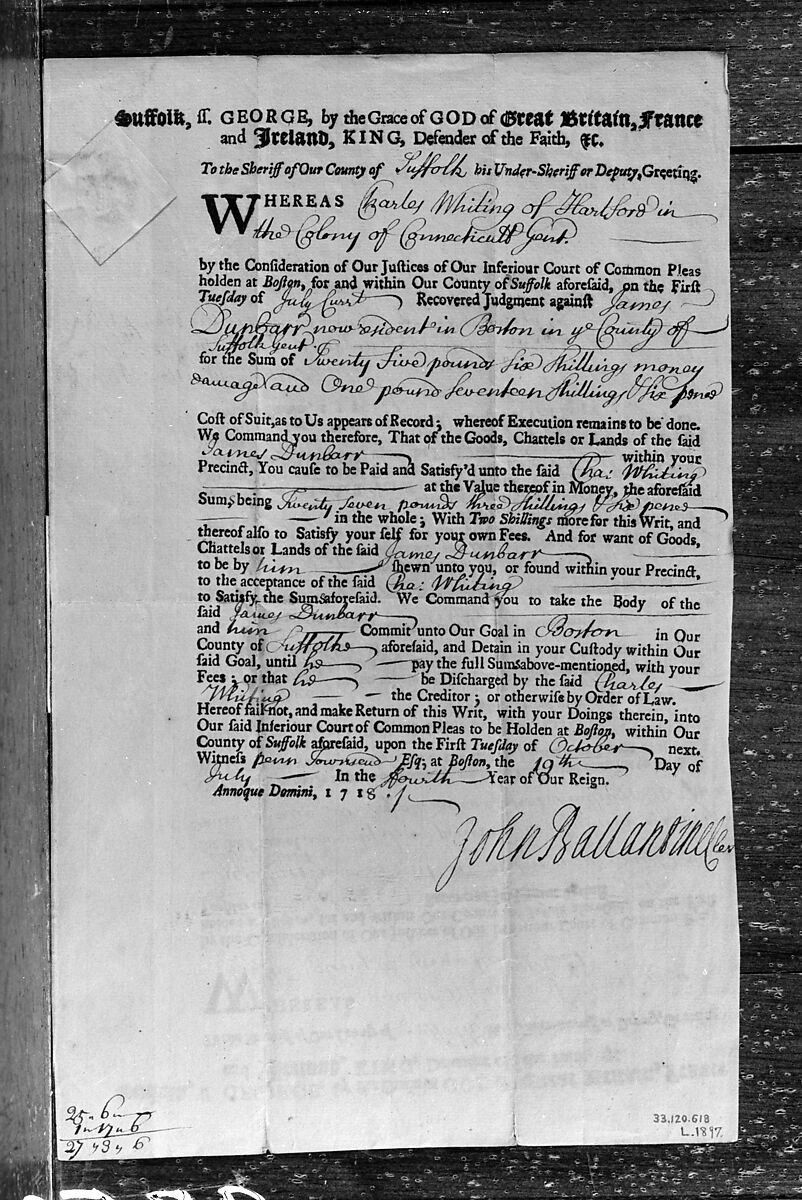 Suffolk, ss. GEORGE, by the Grace of GOD of Great Britain, France
and Ireland, KING, Defender of the Faith, &c.
To the Sheriff of Our County of Suffolk his Under-Sheriff or Deputy, Greeting.
WHEREAS Charles Whiting of Hartford in
the Colony of Connecticutt Gent.
by the Consideration of Our Justices of Our Inferiour Court of Common Pleas
holden at Boston, for and within Our County of Suffolk aforesaid, on the First
Tuesday of July Currt Recovered Judgment against James
Dunbarr now resident in Boston in ye County of
Suffolk Gent.
for the Sum of Twenty Five pounds six shillings money
damage and One pound seventeen shillings & six pence
Cost of Suit, as to Us appears of Record; whereof Execution remains to be done.
We Command you therefore, That of the Goods, Chattels or Lands of the said
James Dunbarr within your
Precinct, You cause to be Paid and Satisfy'd unto the said Cha: Whiting
at the Value thereof in Money, the aforesaid
Sums, being Twenty seven pounds three shillings & six pence
in the whole; With Two Shillings more for this Writ, and
thereof also to Satisfy your self for your own Fees. And for want of Goods,
Chattels or Lands of the said James Dunbarr
to be by him shewn unto you, or found within your Precinct,
to the acceptance of the said Cha: Whiting
to Satisfy the Sums aforesaid. We Command you to take the Body of the
said James Dunbarr
and him Commit unto Our Goal in Boston in Our
County of Suffolke aforesaid, and Detain in your Custody within Our
said Goal, until he pay the full Sums above-mentioned, with your
Fees; or that he be Discharged by the said Charles
Whiting the Creditor; or otherwise by Order of Law.
Hereof fail not, and make Return of this Writ, with your Doings therein, into
Our said Inferiour Court of Common Pleas to be Holden at Boston, within Our
County of Suffolk aforesaid, upon the First Tuesday of October next.
Witness Penn Townsend Esq; at Boston, the 19th Day of
July In the fourth Year of Our Reign.
Annoque Domini, 1718.
John Ballantine Cler
25 " 6 "
1 " 17 " 6
27 " 3 " 6
33.120.618
L.1897